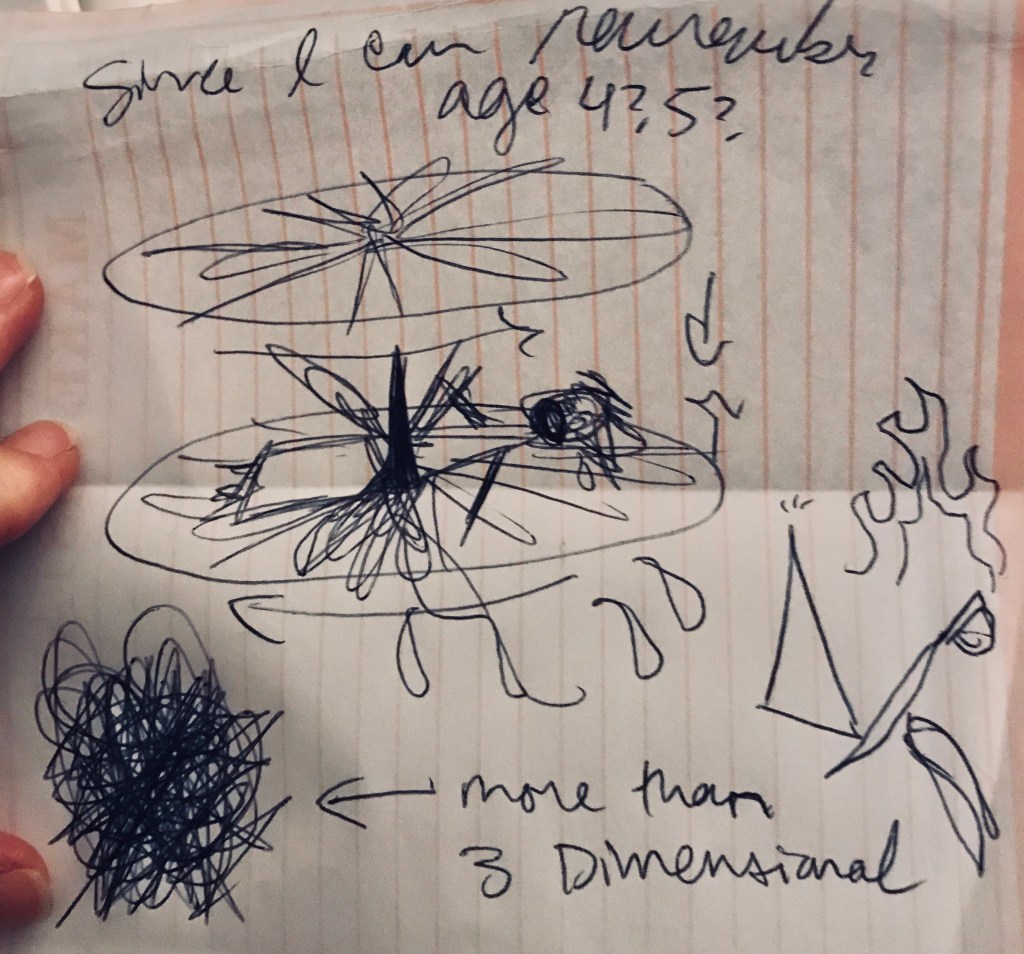 Since I can remember
age 4?, 5?
more than
3 Dimensional